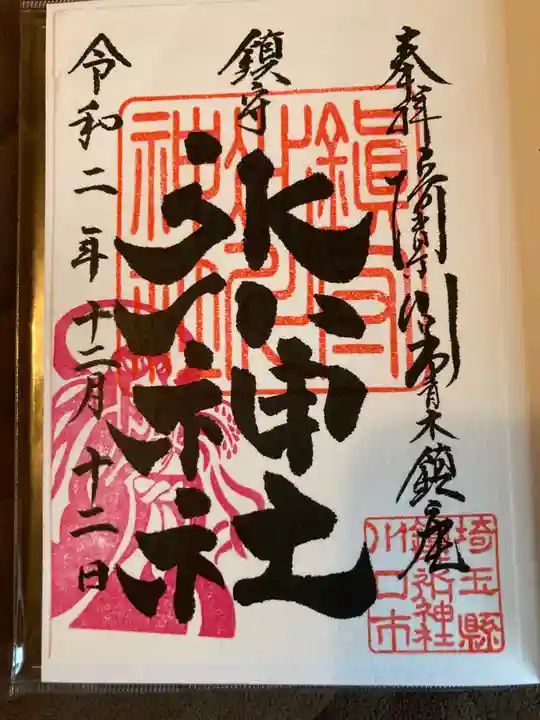 奉拝
青木鎮座
鎮守
氷川神社
令和二年十二月十二日
埼玉縣
鎮守氷川神社
川口市